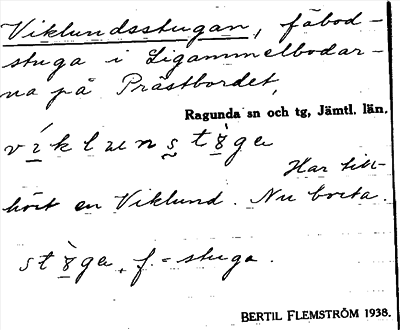 Viklundsstugan, fäbod-
stuga i Ligammelbodar-
na på Prästbordet,
Ragunda sn och tg, Jämtl. län.
víklɯnstȣ̀ga
Har till-
hört en Viklund. Nu borta.
stȣ̀ga, f = stuga.
BERTIL FLEMSTRÖM 1938.